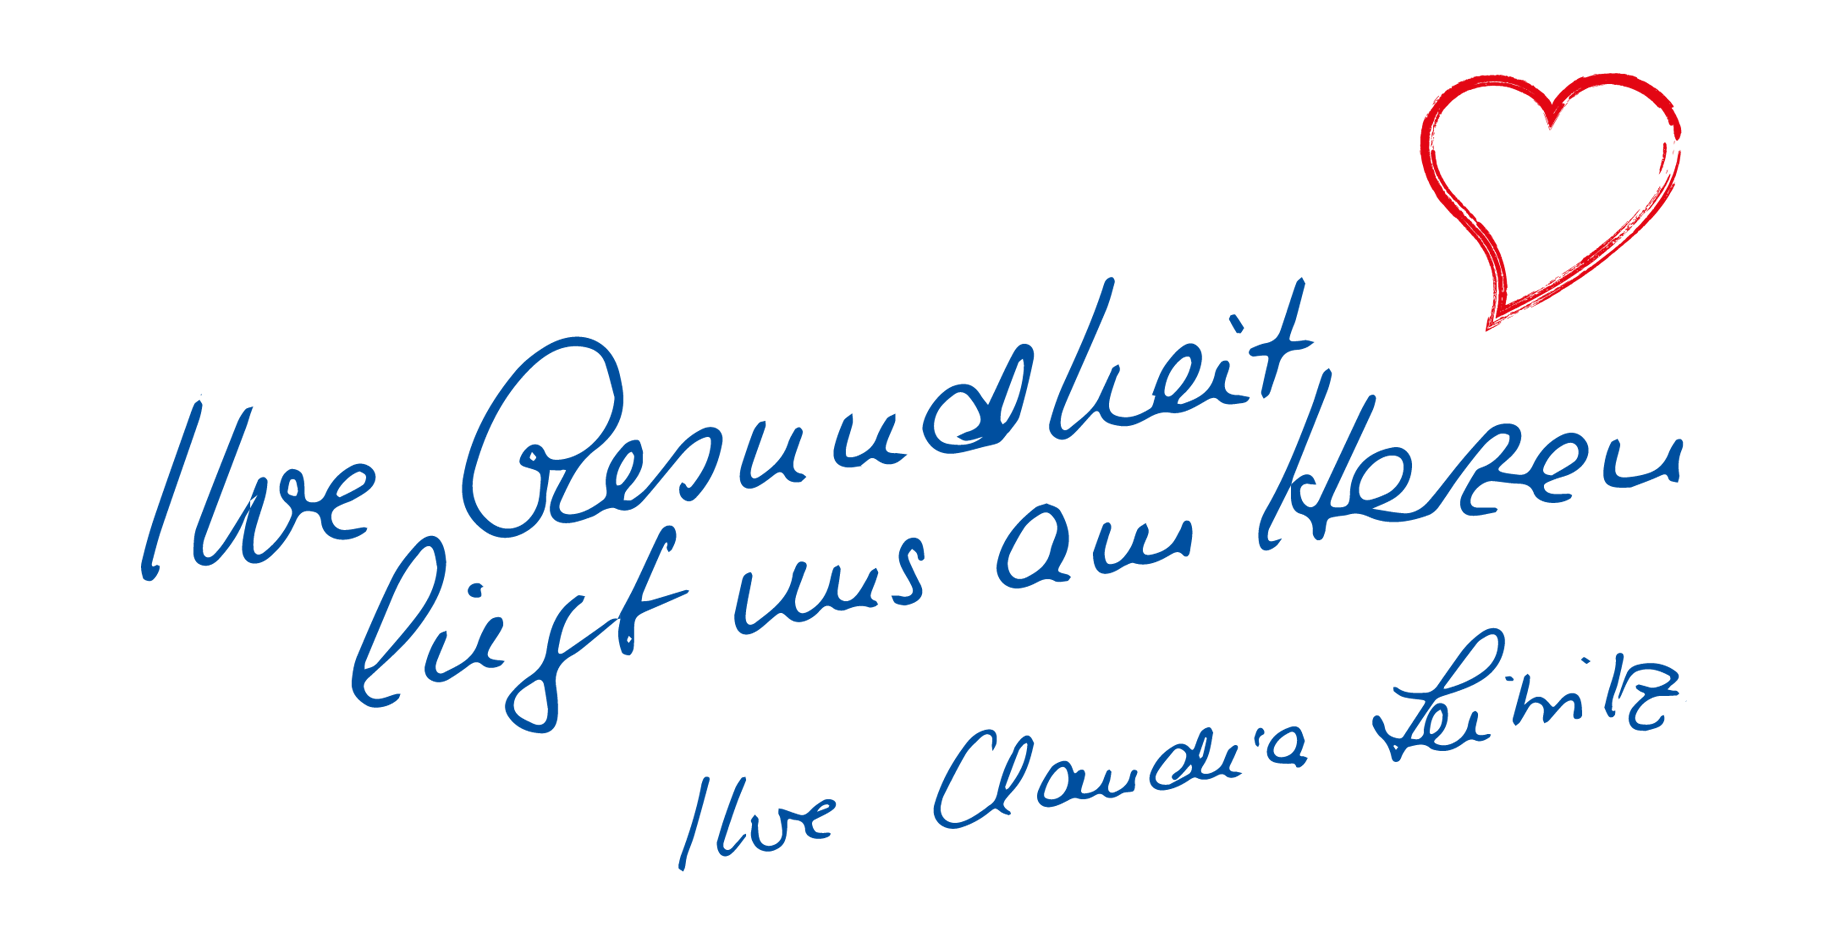 Ihre Gesundheit
liegt uns am Herzen
Ihre Claudia